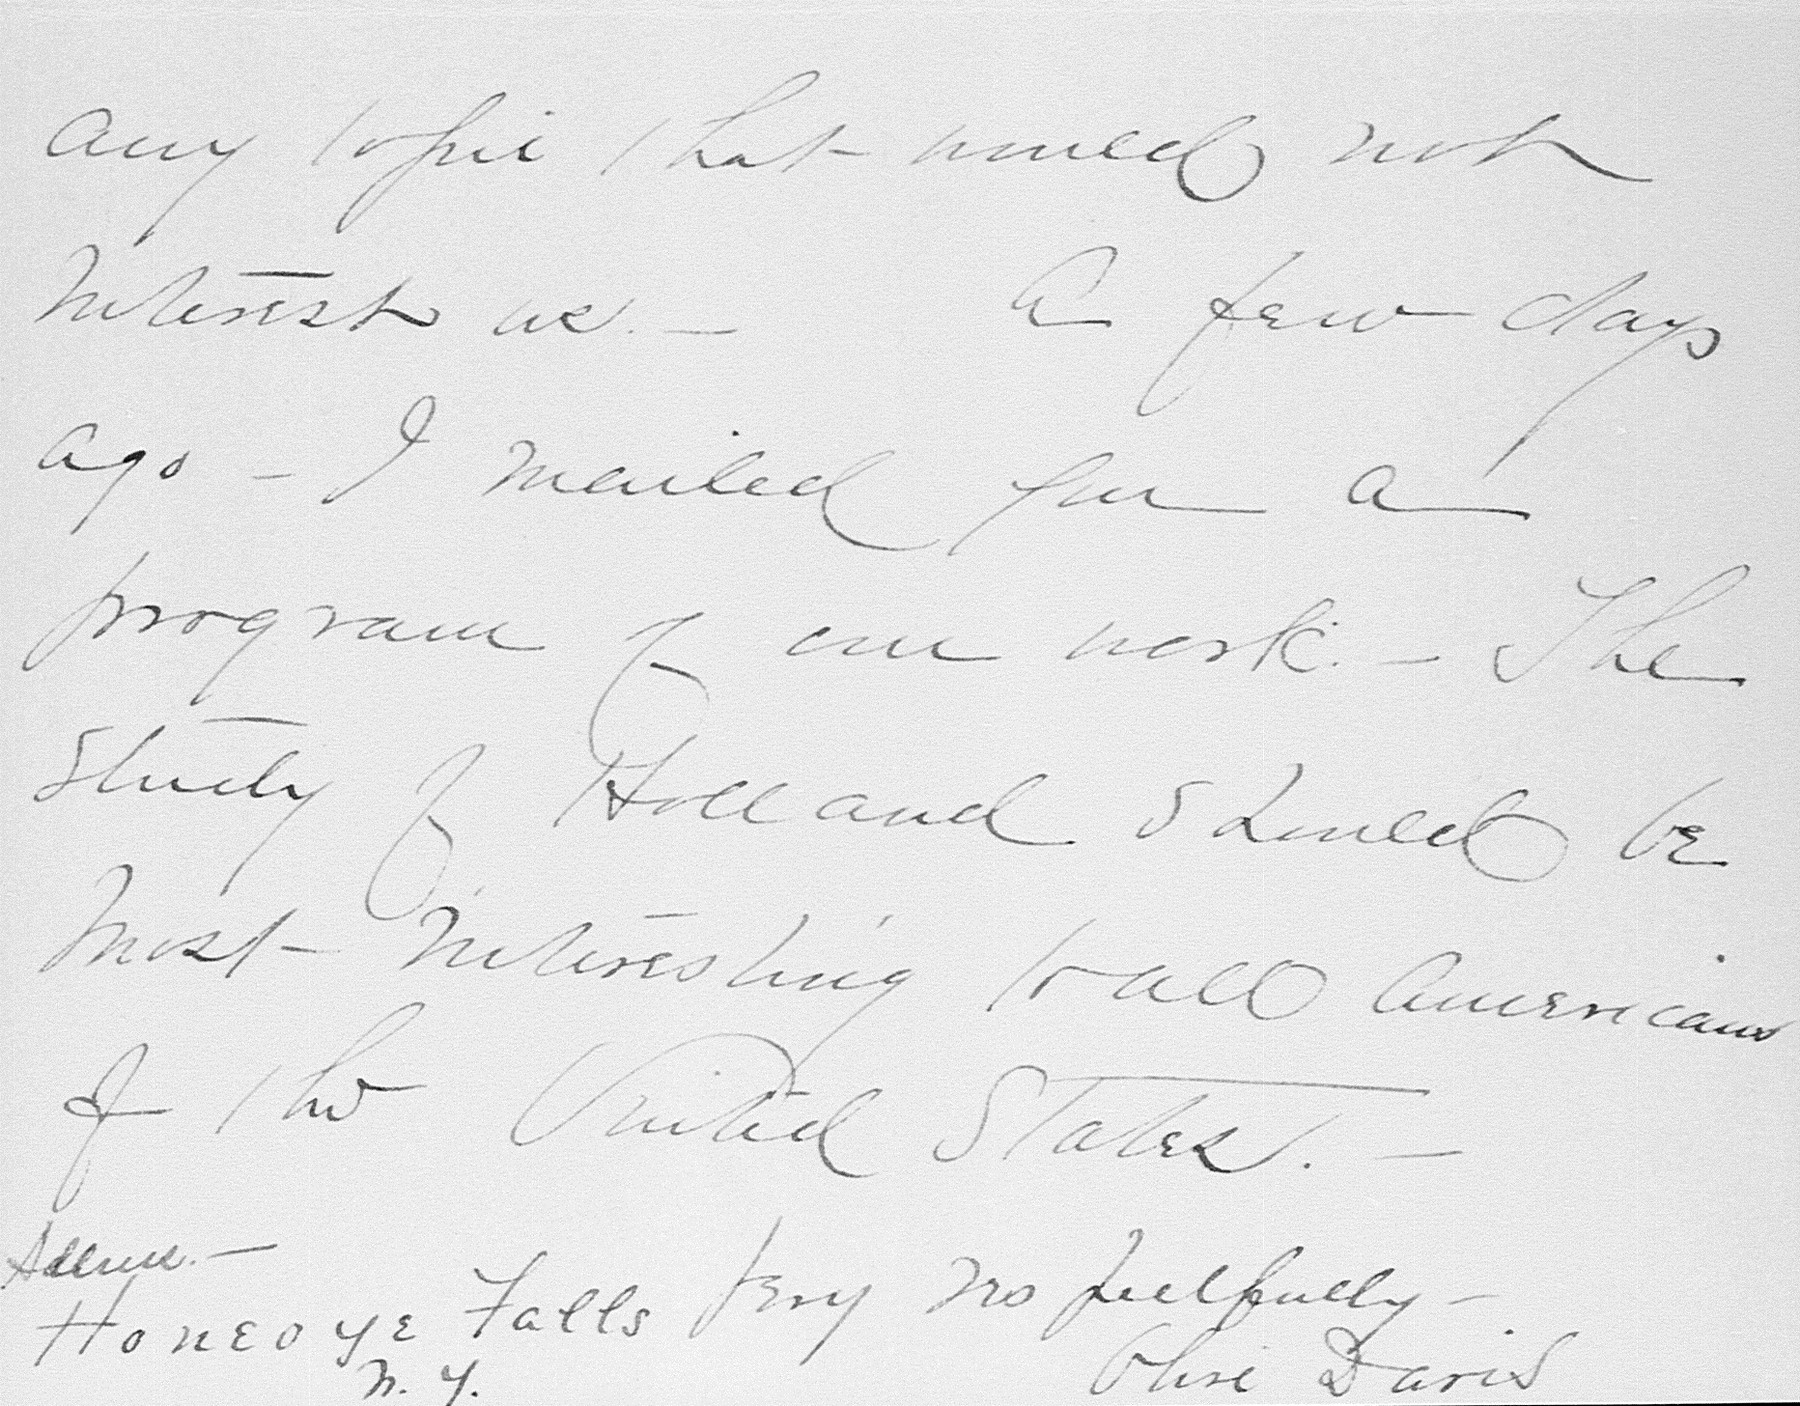 any topic that would not
interest us. —     A few days
ago — I mailed you a
program of our work. — The
study of Holland should be
most interesting to all Americans
of the United States. —
Address. —
Very respectfully —
Honeoye Falls
N. Y.
Olive Davis